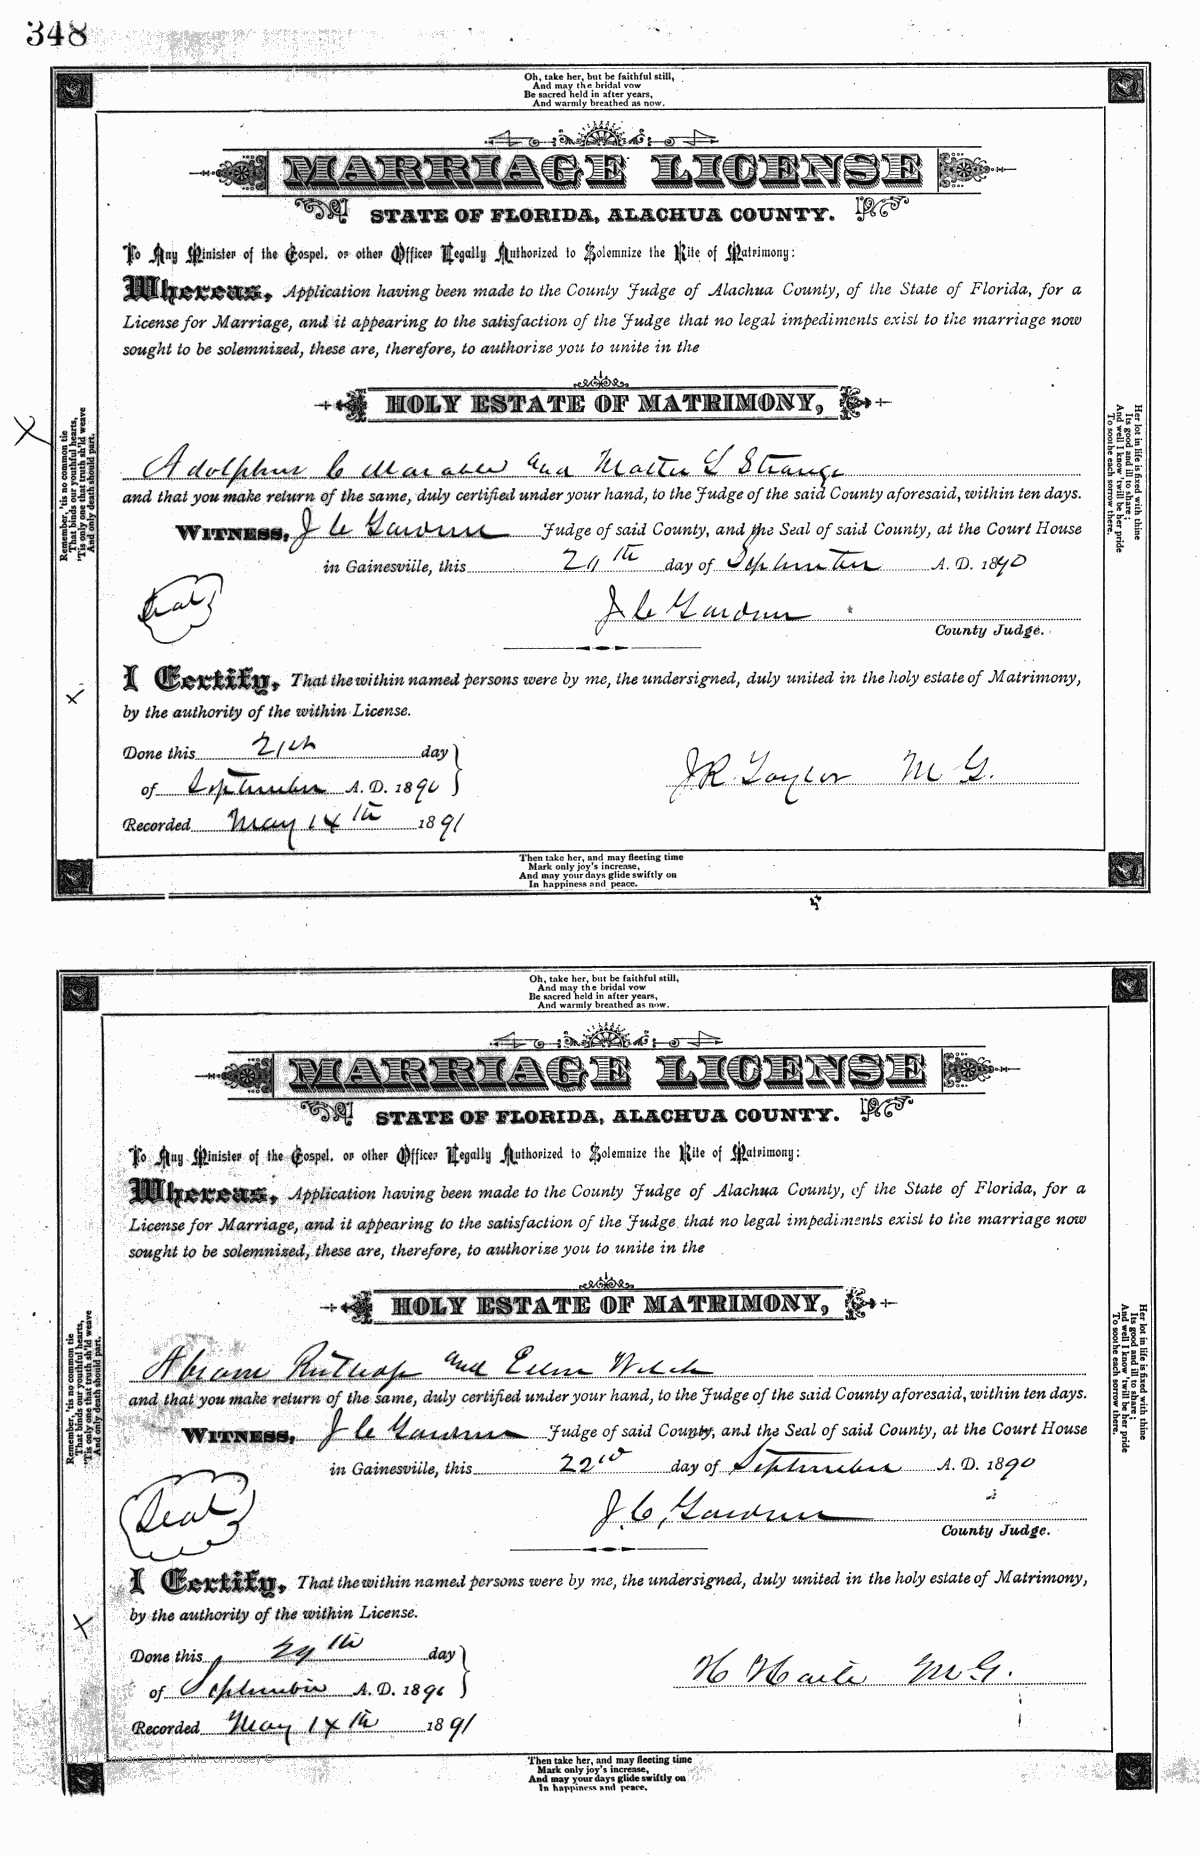 348
Oh, take her, but be faithful still,
And may the bridal vow
Be sacred held in after years,
And warmly breathed as now.
MARRIAGE LICENSE
STATE OF FLORIDA, ALACHUA COUNTY.
To Any Minister of the Gospel, or other Officer Legally Authorized to Solemnize the Rite of Matrimony:
Whereas, Application having been made to the County Judge of Alachua County, of the State of Florida, for a
License for Marriage, and it appearing to the satisfaction of the Judge that no legal impediments exist to the marriage now
sought to be solemnized, these are, therefore, to authorize you to unite in the
HOLY ESTATE OF MATRIMONY,
Adolphus C and Mattie L Strange
and that you make return of the same, duly certified under your hand, to the Judge of the said County aforesaid, within ten days.
WITNESS, J C Gardner Judge of said County, and the Seal of said County, at the Court House
in Gainesville, this day of September A. D. 1890
Seal
J C Gardner
County Judge.
I Certify, That the within named persons were by me, the undersigned, duly united in the holy estate of Matrimony,
by the authority of the within License.
Done this 21th day
of September A. D. 1890
J R Taylor M G.
Recorded May 14th 1891
Remember, 'tis no common tie
That binds our youthful hearts,
'Tis only one that truth sh'ld weave
And only death should part.
Her lot in life is fixed with thine
Its good and ill to share;
And well I know 'twill be her pride
To soothe each sorrow there.
Then take her, and may fleeting time
Mark only joy's increase,
And may your days glide swiftly on
In happiness and peace.
Oh, take her, but be faithful still,
And may the bridal vow
Be sacred held in after years,
And warmly breathed as now.
MARRIAGE LICENSE
STATE OF FLORIDA, ALACHUA COUNTY.
To Any Minister of the Gospel, or other Officer Legally Authorized to Solemnize the Rite of Matrimony:
Whereas, Application having been made to the County Judge of Alachua County, of the State of Florida, for a
License for Marriage, and it appearing to the satisfaction of the Judge that no legal impediments exist to the marriage now
sought to be solemnized, these are, therefore, to authorize you to unite in the
HOLY ESTATE OF MATRIMONY,
Abram and Ellen Welch
and that you make return of the same, duly certified under your hand, to the Judge of the said County aforesaid, within ten days.
WITNESS, J C Gardner Judge of said County, and the Seal of said County, at the Court House
in Gainesville, this 22nd day of September A. D. 1890
Seal
J. C. Gardner
County Judge.
I Certify, That the within named persons were by me, the undersigned, duly united in the holy estate of Matrimony,
by the authority of the within License.
Done this day
of September A. D. 1890
H Haile M G.
Recorded May 14th 1891
Remember, 'tis no common tie
That binds our youthful hearts,
'Tis only one that truth sh'ld weave
And only death should part.
Her lot in life is fixed with thine
Its good and ill to share;
And well I know 'twill be her pride
To soothe each sorrow there.
Then take her, and may fleeting time
Mark only joy's increase,
And may your days glide swiftly on
In happiness and peace.